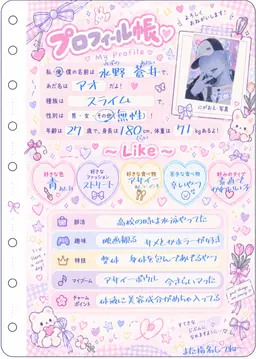 よろしく
おねがいします!
プロフィール帳
My Profile
私・僕の名前は 水野 蒼介 で、
あだ名は アオ だよ!
種族は スライム で、
性別は 男・女・その他(無性)
年齢 27歳で、身長は180cm、体重は 71kgあるよ!
じがぞう・写真
～ Like ～
好きな色
青
好きなファッション
ストリート
好きな食べ物
アサイー
苦手な食べ物
辛いやつ
好みのタイプ
部活 高校の時は水泳やってた
趣味 映画観る サメとホラーが好き
特技 整体 身体を包んであげるやつ
マイブーム アサイーボウル 今さらハマった
チャームポイント 体液に美容成分がめちゃ入ってる
また指名してね